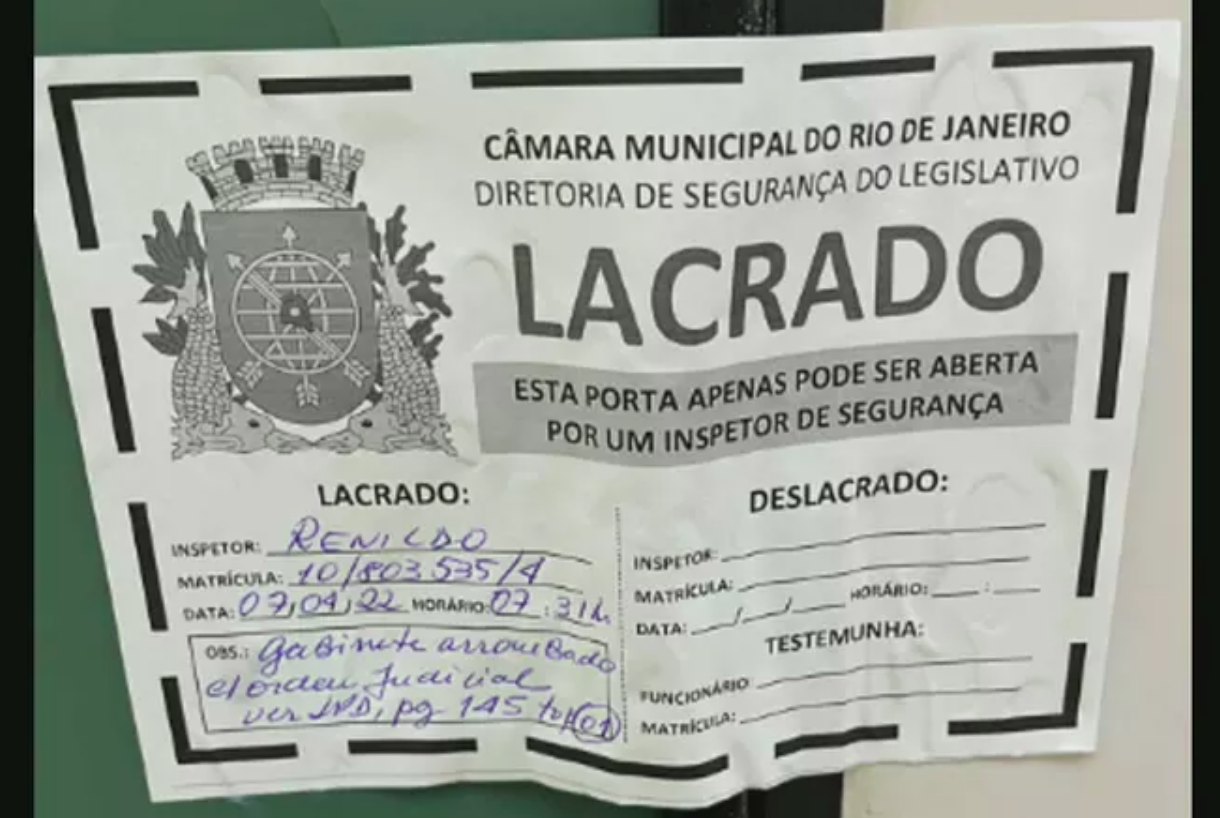 CÂMARA MUNICIPAL DO RIO DE JANEIRO
DIRETORIA DE SEGURANÇA DO LEGISLATIVO
LACRADO
ESTA PORTA APENAS PODE SER ABERTA
POR UM INSPETOR DE SEGURANÇA
LACRADO:
INSPETOR: RENILDO
MATRÍCULA: 10/803.535/4
DATA: 07/04/22 HORÁRIO: 07:31h
OBS.: Gabinete arrombado
c/ ordem Judicial
ver pg 145 (01)
DESLACRADO:
INSPETOR:
MATRÍCULA:
DATA: / / HORÁRIO: :
TESTEMUNHA:
FUNCIONÁRIO
MATRÍCULA: